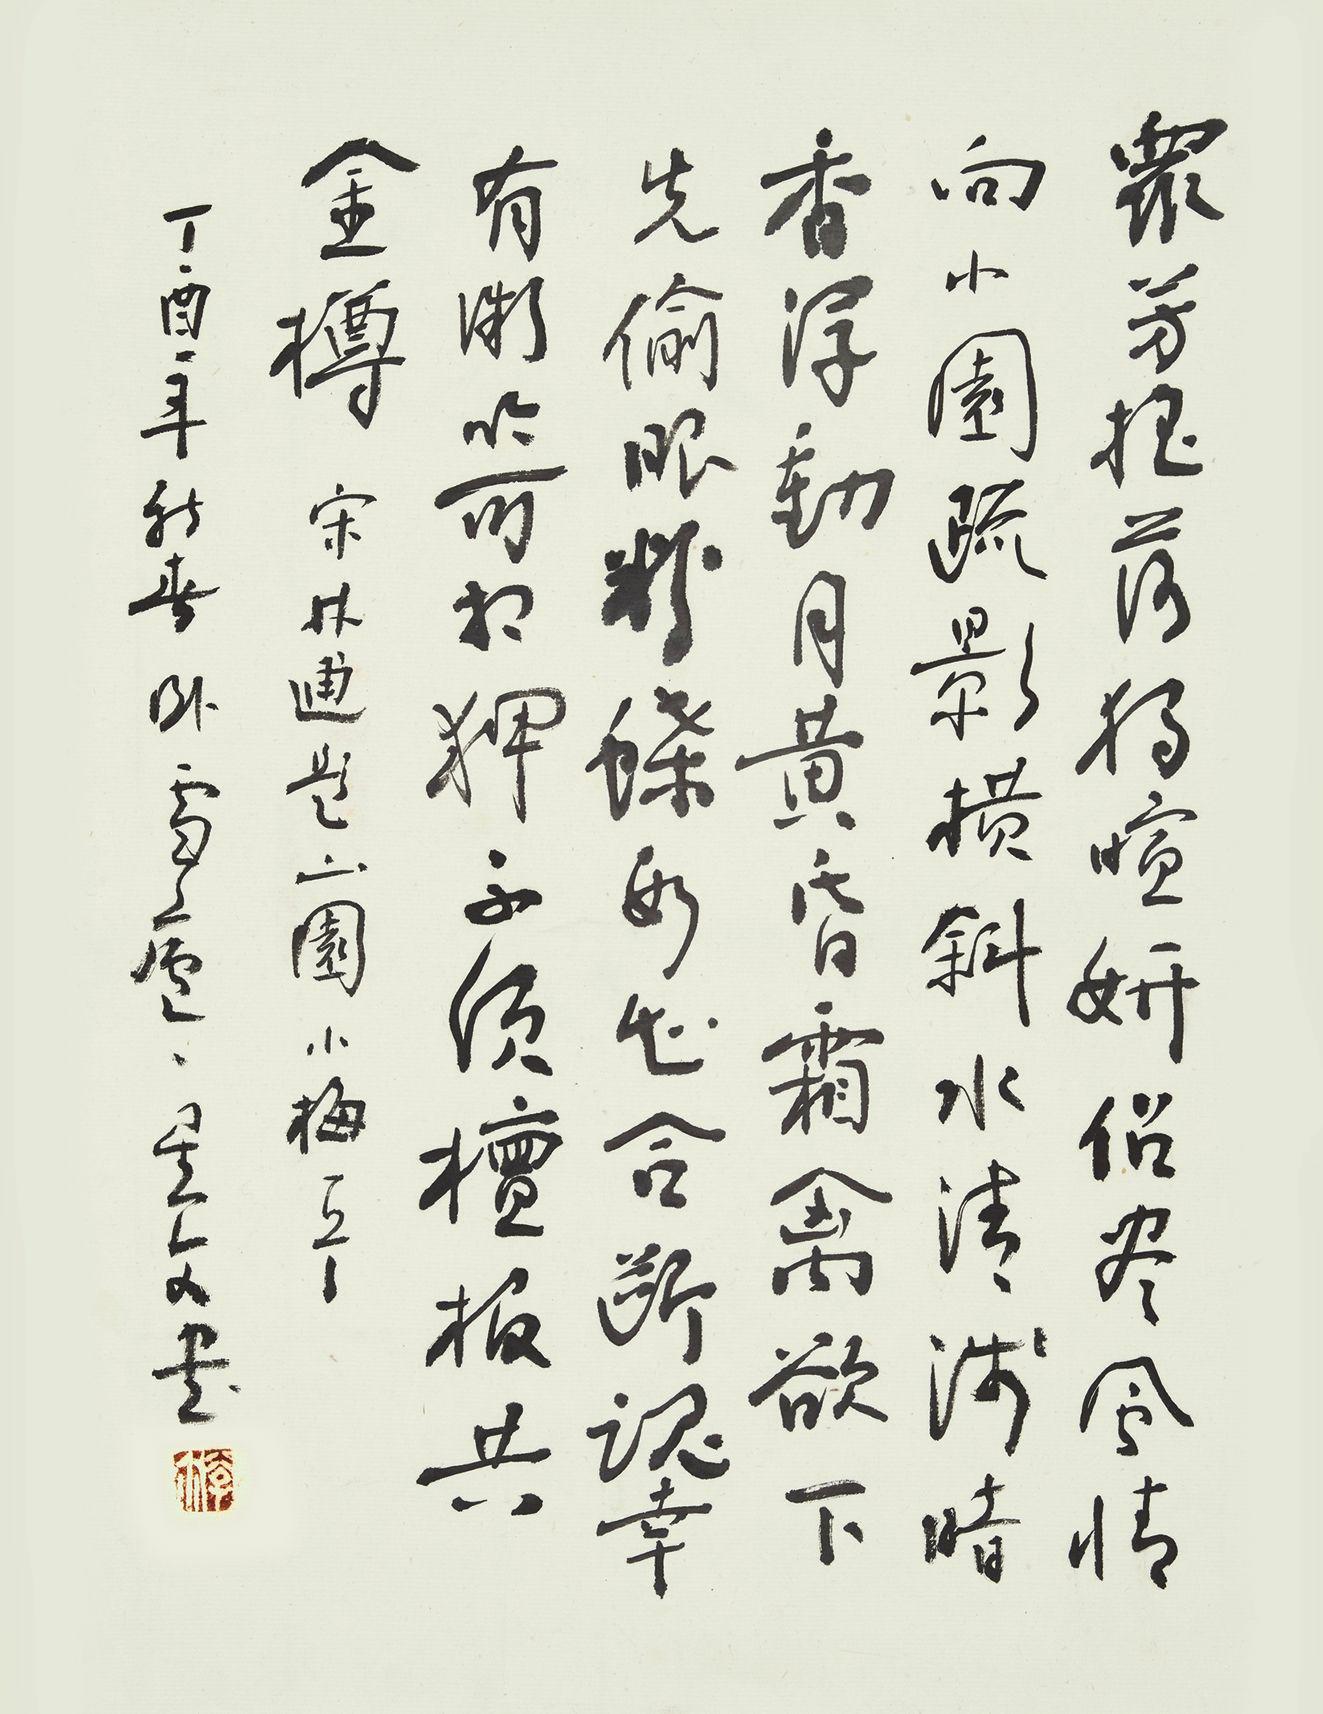 眾芳搖落獨暄妍佔尽風情
向小園疏影橫斜水清淺暗
香浮動月黃昏霜禽欲下
先偷眼粉蝶如知合斷魂幸
有微吟可相狎不須檀板共
金樽 宋林逋題山園小梅
丁酉年新春卧雪廬 文書